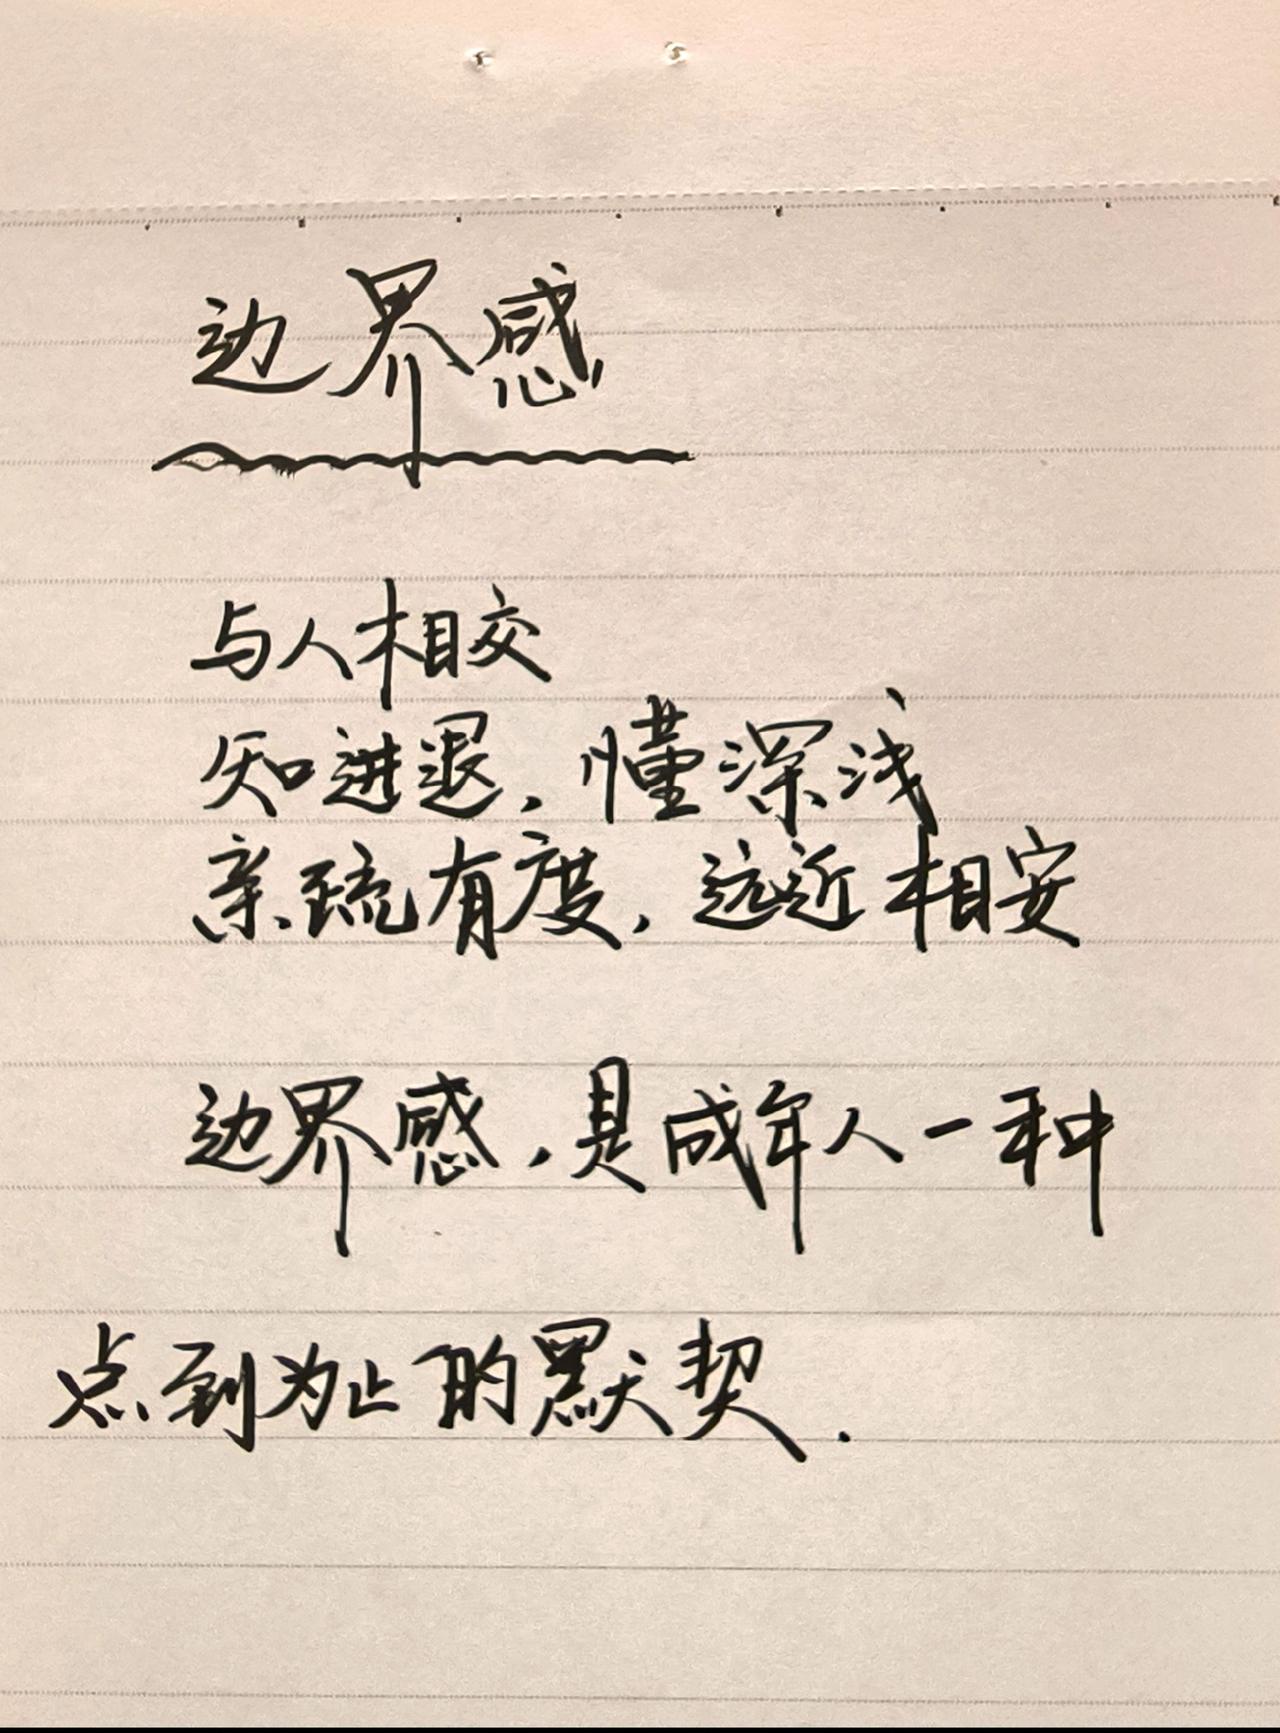 边界感
与人相交
知进退，懂深浅
亲疏有度，远近相安
边界感，是成年人一种
点到为止的默契.